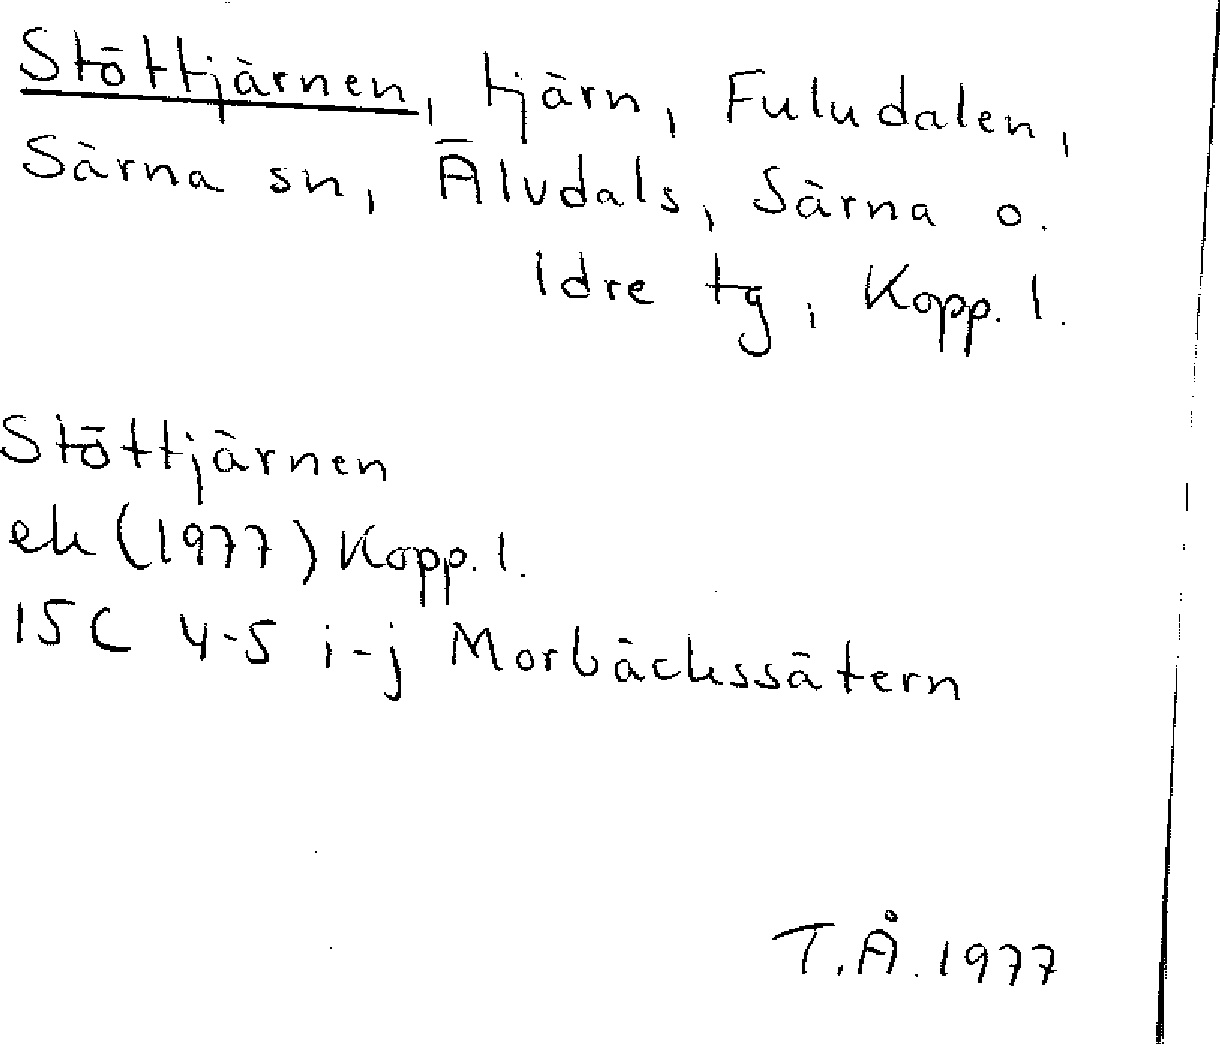 Stöttjärnen, tjärn, Fuludalen,
Särna sn, Älvdals, Särna o.
Idre tg, Kopp. l.
Stöttjärnen
ek (1977) Kopp. l.
15C 4-5 i-j Morbäckssätern
T.Å. 1977